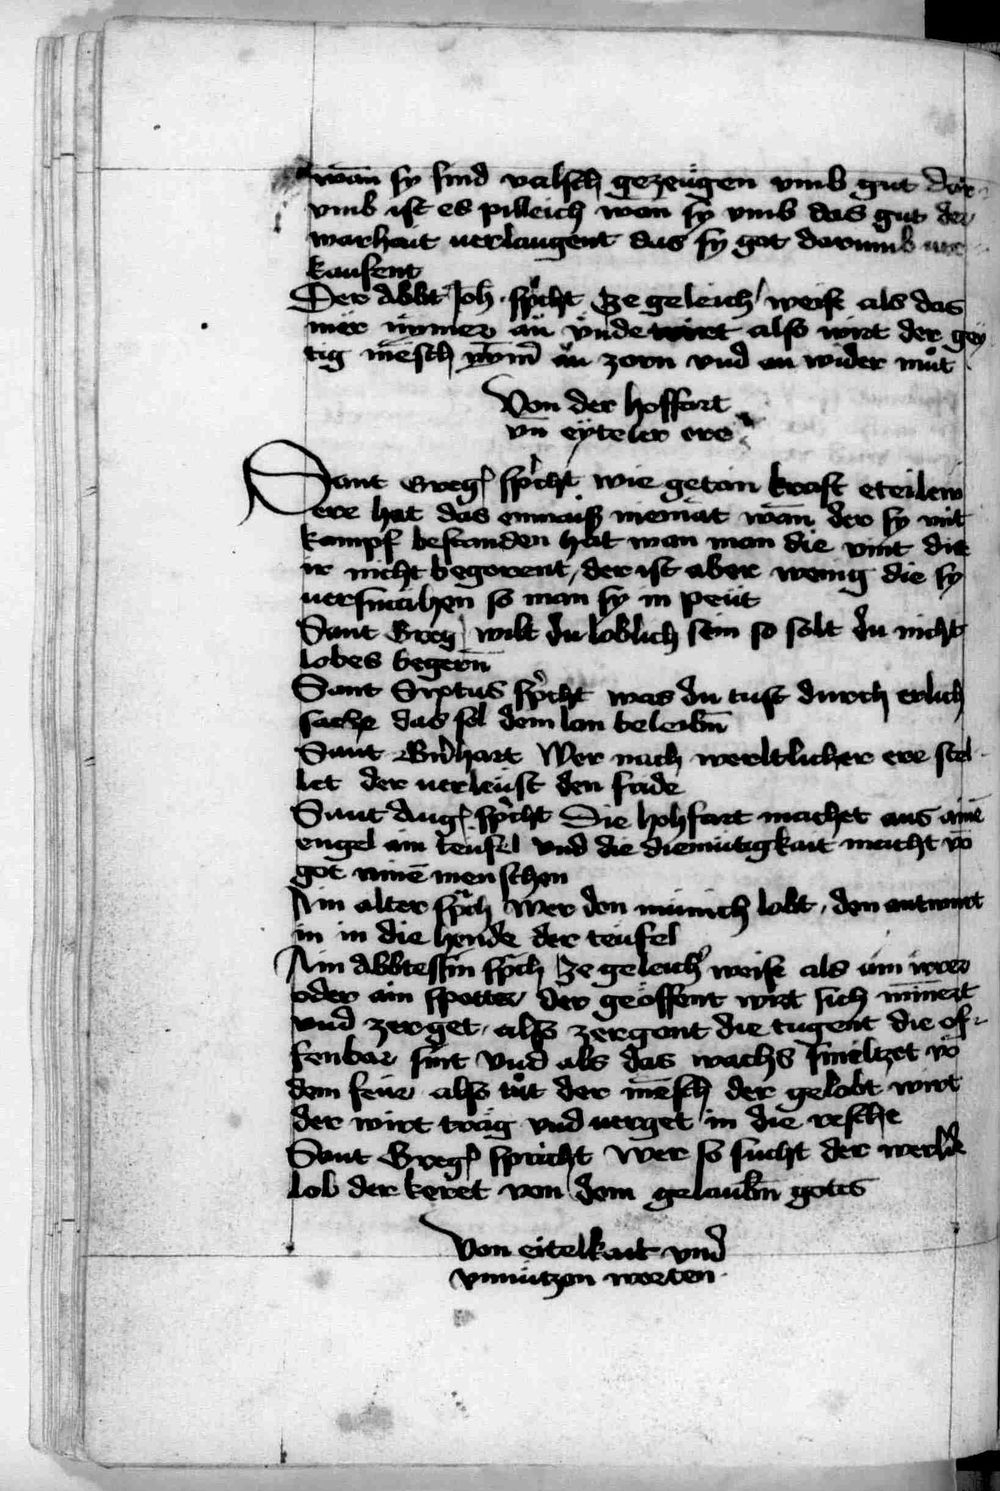 wān sy sind valsch gezeügen vmb gut dar
vmb ist es pilleich wan sy vmb das gut der
warhait verlaugent das sy got darumb ver
kaufent
Der Abbt Joh. spͥcht Ze geleich weiſ als das
mer nÿmer an vnde wirt also wirt der gey
tig mēsch nȳm̄ an zorn vnd an wider muͦt
Von der hoffart
vn̄ eyteler ere
Sant Greg spͥcht wie getan kraft eteilew
ere hat das enwaiſ niemāt wān der sy mit
kampf bestanden hat wan man die vint die
ir nicht begerent, der ist aber wenig die sy
versmähen so man sy in peüt
Sant Greg wilt du loblich sein so solt du nicht
lobes begern̄
Sant Sixtus spͥcht was du tust durch erlich
sache das sol dem lon beleibn̄
Sant Bn̄hart Wer nach werltlicher ere stel
let der verleüst den fride
Sant Aug spͥcht Die hohfart machet aus ainē
engel ain teufel vnd die diemütigkait macht vō
got ainē menschen
Ain alter spᵃch Wer den münich lobt, den antwurt
in in die hende der teufel
Ain Abbtessin spᵃch Ze geleicher weiſ als ain
oder ain der geöffent wirt sich mīnert
vnd zerget, also zergent die tugent die of
fenbar sint Vnd als das wachs smeltzet vō
dem feüer also tuͦt der mēsch der gelobt wirt
der wirt träg vnd verget in die resche
Sant Greg spricht Wer so sucht der werlde
lob der keret von dem gelaubn̄ gotes
Von eitelkait vnd
vnnützen worten